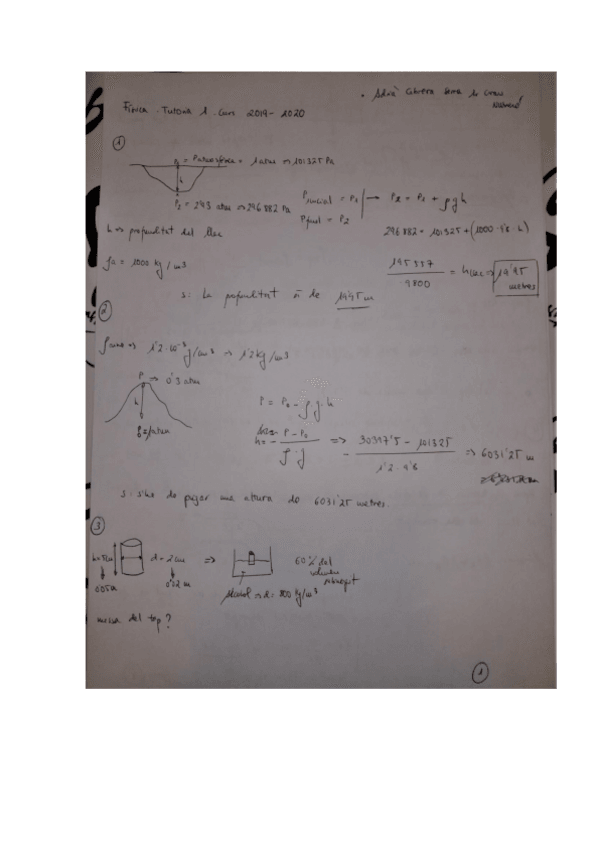 Adrià Cabrera Serra 1r Grau
Física. Tutoria 1. Curs 2019-2020
1
P1 = Patmosfèrica = 1 atm => 101325 Pa
h
P2 = 2'93 atm => 296882 Pa
Pinicial = P1
Pfinal = P2
P2 = P1 + ρgh
h => profunditat del llac
296882 = 101325 + (1000·9'8·h)
ρa = 1000 kg/m3
195557 / 9800 = hllac => 19'95 metres
s: La profunditat és de 19'95 m
2
ρaire => 1'2·10^-3 g/cm3 => 1'2 kg/m3
P => 0'3 atm
h
P0 = 1 atm
P = P0 - ρ·g·h
h = - (P - P0) / (ρ·g) => - (30397'5 - 101325) / (1'2·9'8) => 6031'25 m
s: s'ha de pujar una altura de 6031'25 metres.
3
h=5cm d=2cm => 60% del volum submergit
0'05m 0'02m alcohol => d: 800 kg/m3
massa del tap?
1